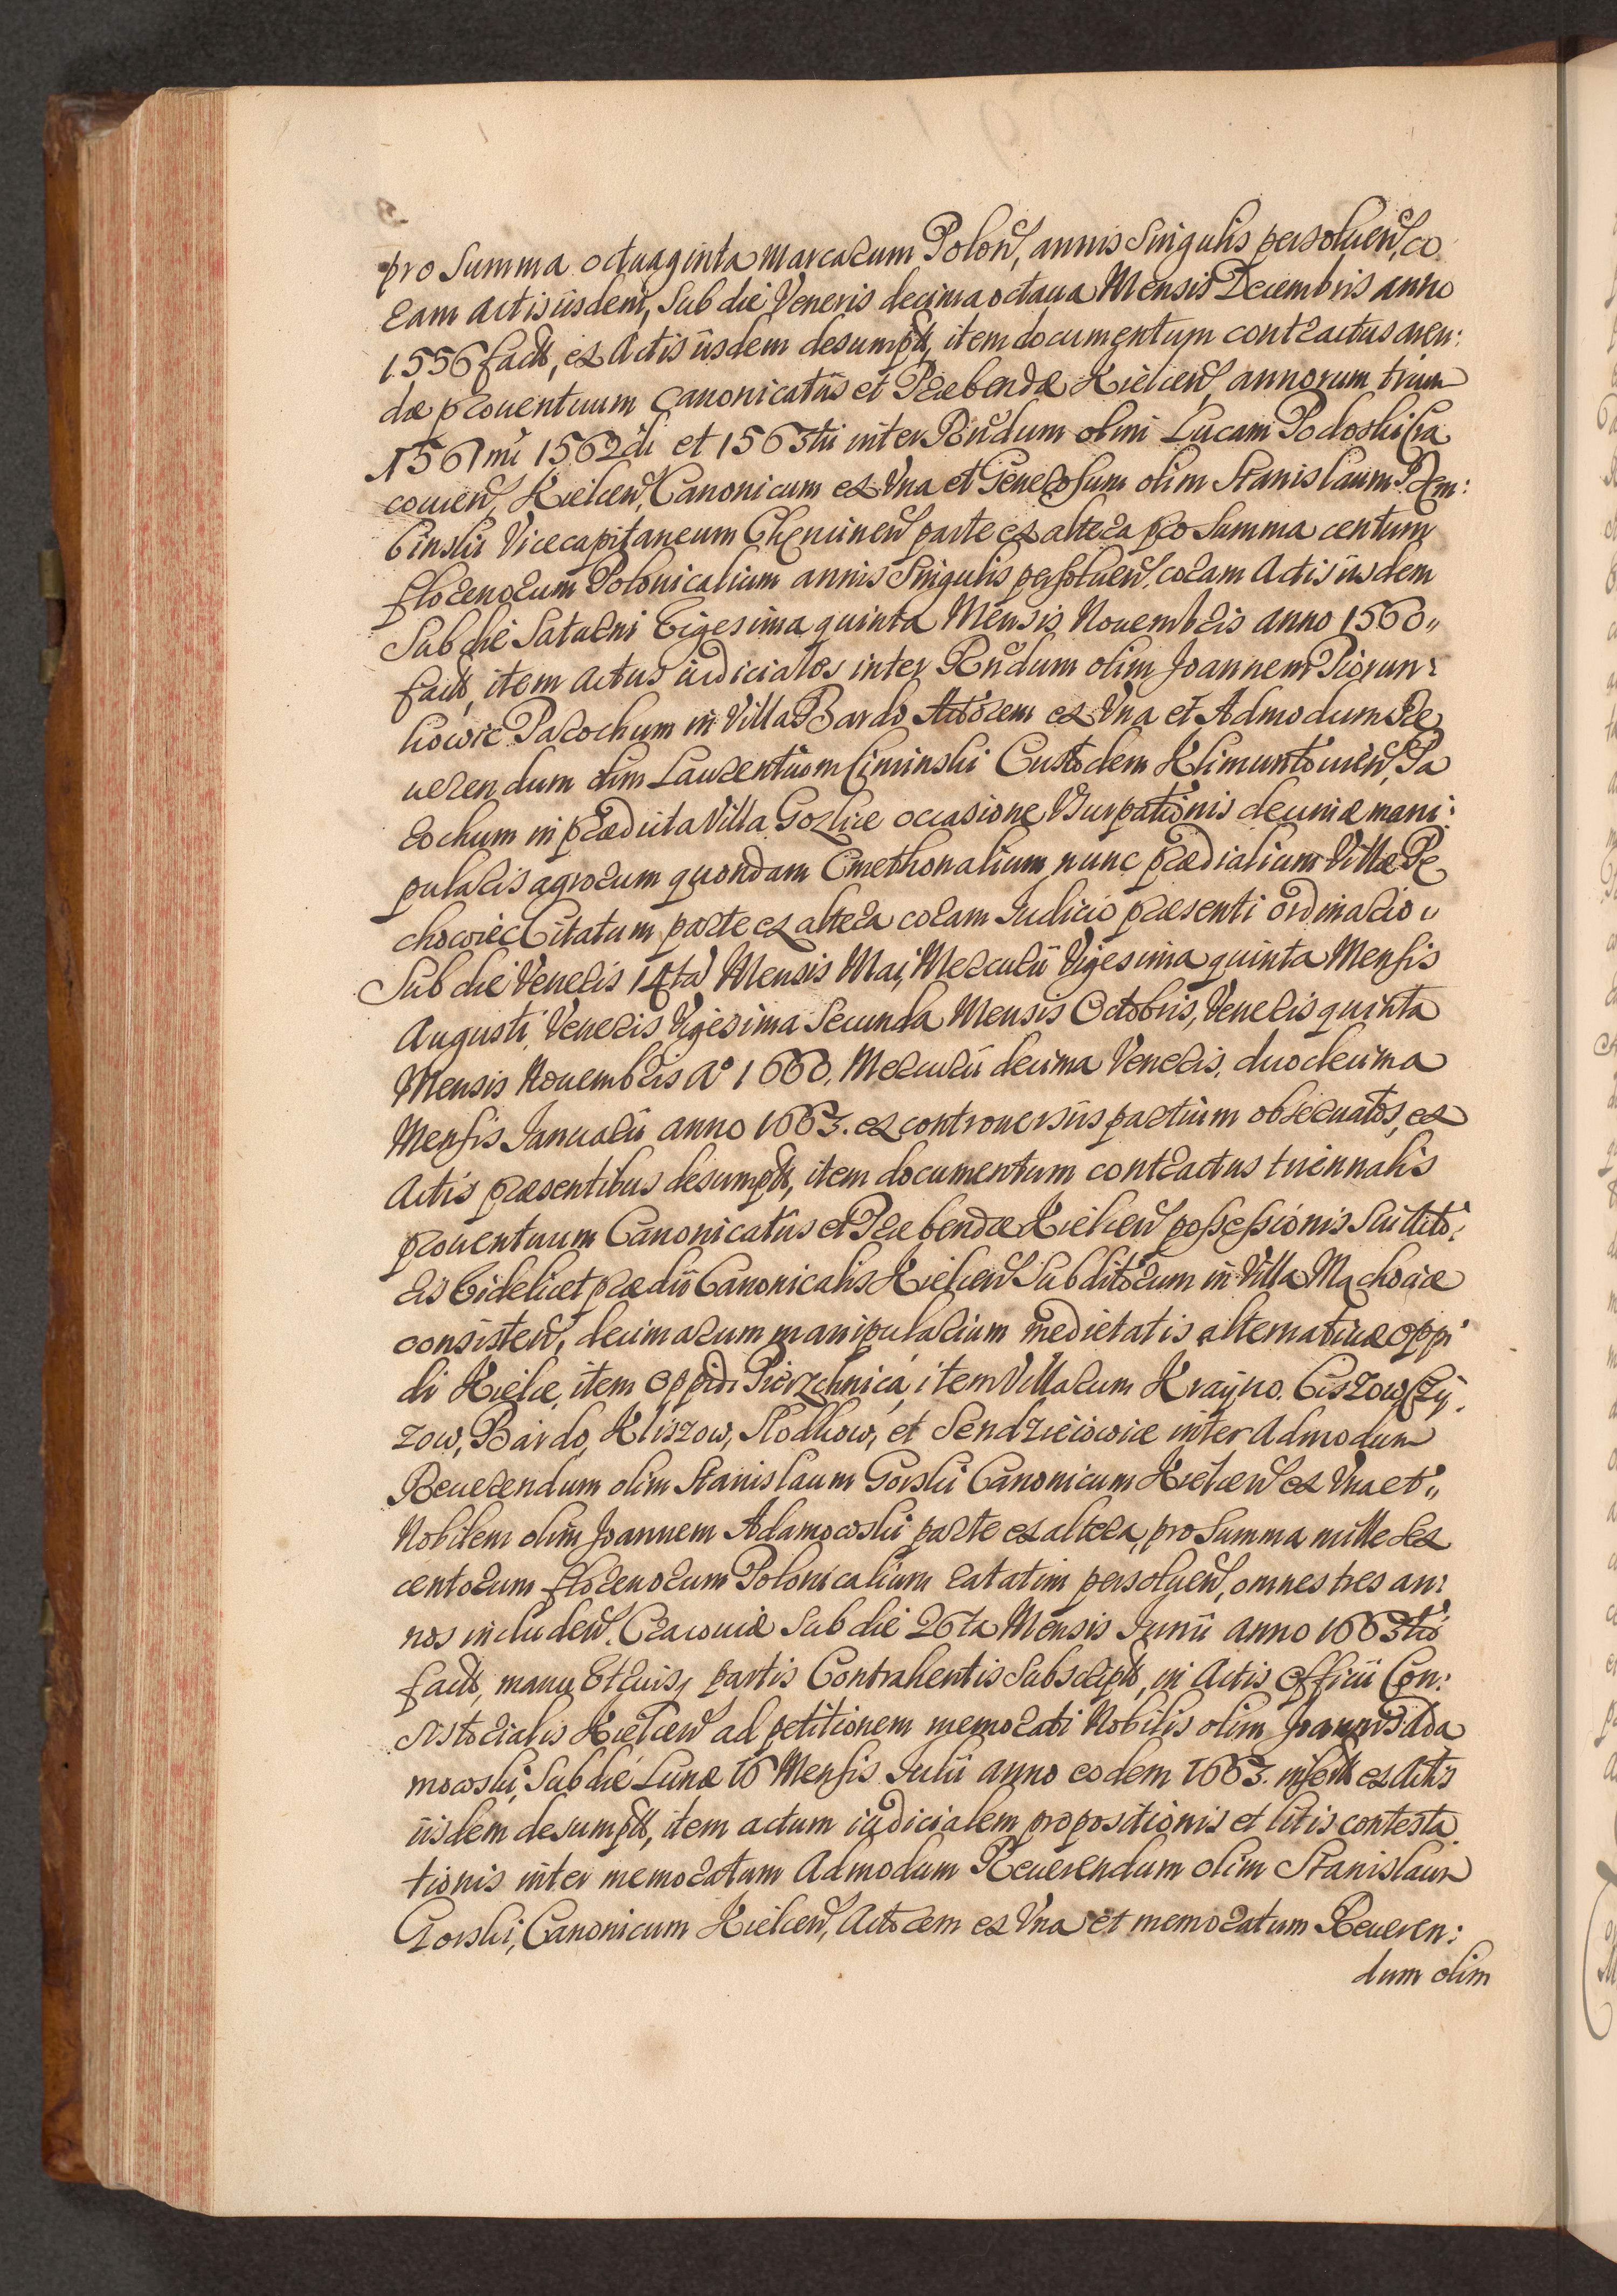 pro Summa octuaginta marcarum Polon̄, annis Singulis persoluen̄, co
ram Actis iisdem, Sub die Veneris decima octaua Mensis Decembris anno
1556 fact̄, ex Actis iisdem desumpt̄, item documentum contractus aren:
dæ prouentuum Canonicatus et Præbendæ Kielcen̄, annorum trium
1561 mi 1562 di et 1563 tii inter Rn̄dum olim Lucam Podoski Cra
couien̄, Kielcen̄, Canonicum ex Vna et Generosum olim Stanislaum Dem:
binski Vicecapitaneum Chencinen̄ parte ex altera pro Summa centum
florenorum Polonicalium annis Singulis persoluen̄, coram Actis iisdem
Sub die Saturni Vigesima quinta Mensis Nouembris anno 1560 „
fact̄, item actus iudiciales inter Rn̄dum olim Joannem Piorun:
kowic Parochum in Villa Bardo Actorem ex Vna et Admodum Re
uerendum olim Laurentium Ciminski Custodem Klimuntouien̄, Pa
rochum in prædicta Villa Gorlice occasione Vsurpationis decimæ mani:
pularis agrorum quondam Cmethonalium nunc prædialium Villæ Pe
chowiec Citatum parte ex altera coram Iudicio præsenti ordinario „
Sub die Veneris 14ta Mensis Maij, Mercurii Vigesima quinta Mensis
Augusti, Veneris Vigesima Secunda Mensis Octobris, Veneris quinta
Mensis Nouembris Aº 1660, Mercurii decima Veneris, duodecima
Mensis Januarii anno 1663. ex controuersiis partium obseruatos, ex
Actis præsentibus desumpt̄, item documentum contractus triennalis
prouentuum Canonicatus et Præbendæ Kielcen̄ possessionis Sui Acto:
ris Videlicet prædii Canonicalis Kielcen̄ Subditorum in Villa Machocice
consisten̄, decimarum manipularium medietatis alternatiuæ oppi
di Kielce, item oppidi Pierzchnica, item Villarum Krayno. Ciszow, Czy:
zow, Bardo, Kliszow, Slodkow, et Sendzieiowice inter Admodum
Reuerendum olim Stanislaum Gorski Canonicum Kielcen̄ ex Vna et „
Nobilem olim Joannem Adamowski parte ex altera, pro Summa mille Sex
centorum florenorum Polonicalium ratatim persoluen̄, omnes tres an:
nos includen̄. Cracouiæ Sub die 26ta Mensis Junii anno 1663tio
fact̄, manu Vtriusq partis Contrahentis Subscript̄, in Actis Officii Con:
sistorialis Kielcen̄ ad petitionem memorati Nobilis olim Joannis Ada
mowski, Sub die Lunæ 16 Mensis Julii anno eodem 1663. insert̄ ex Actis
iisdem desumpt̄, item actum iudicialem propositionis et litis contesta
tionis inter memoratum Admodum Reuerendum olim Stanislaum
Gorski, Canonicum Kielcen̄, Actorem ex Vna et memoratum Reueren:
dum olim